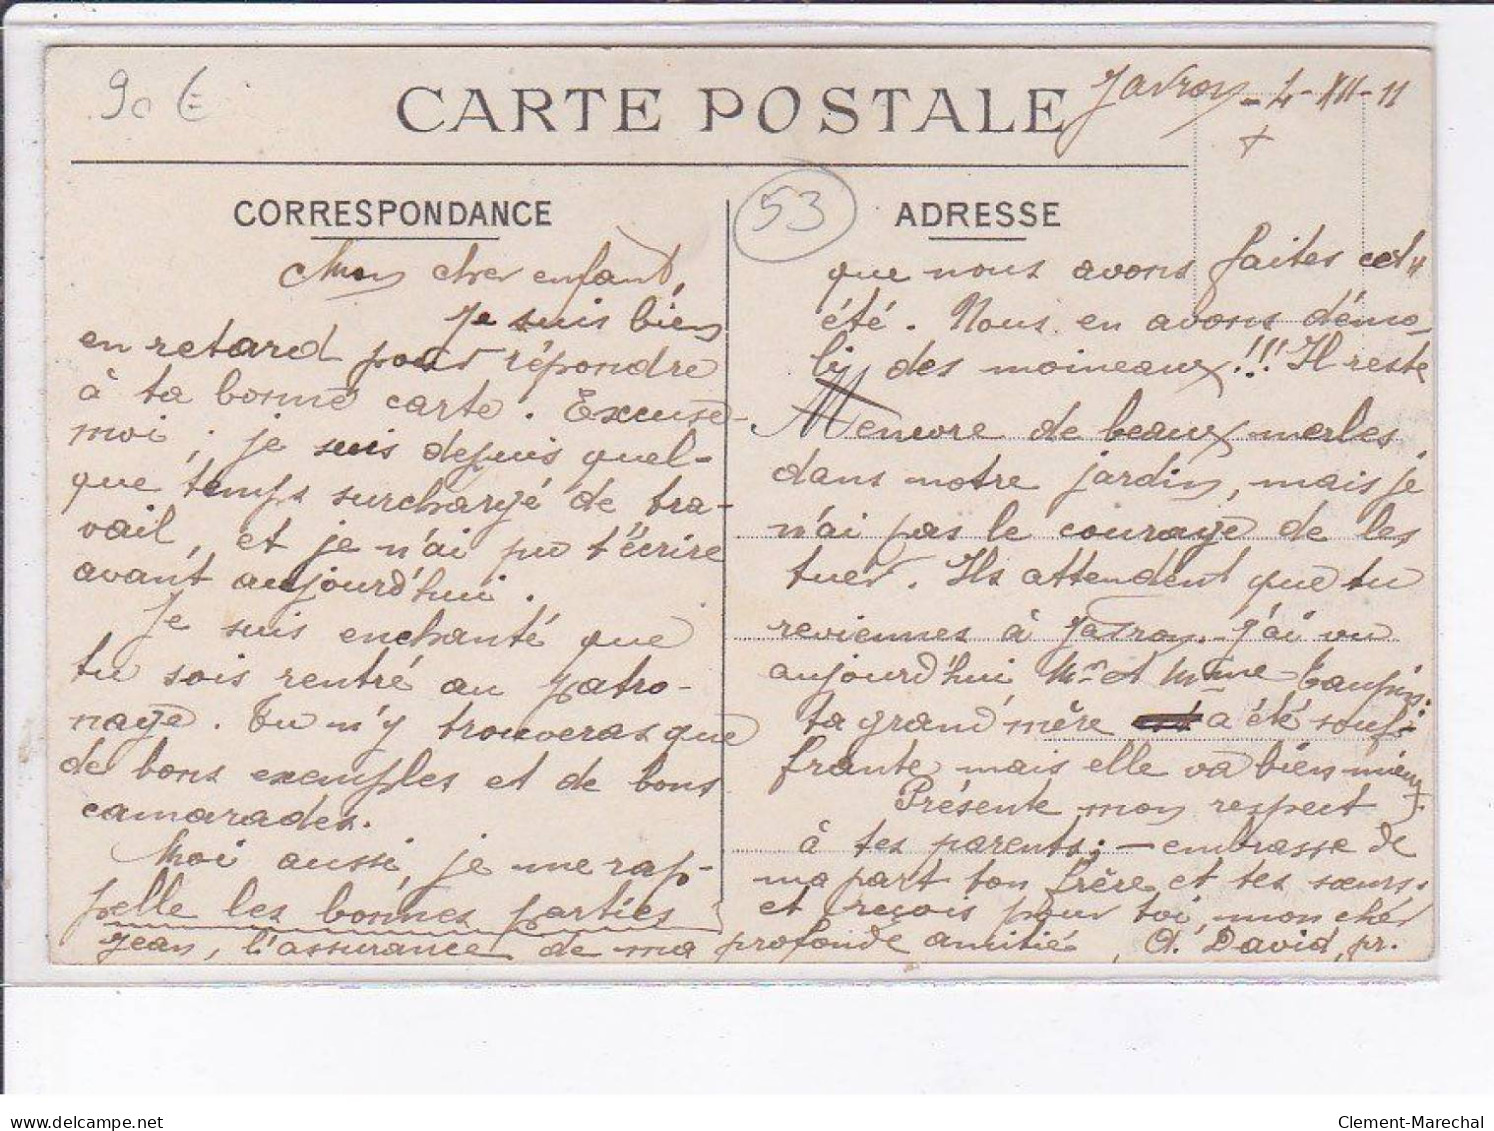 90 €
CARTE POSTALE
Javron - 4 - XII - 11
+
CORRESPONDANCE
53
ADRESSE
Mon cher enfant,
Je suis bien
en retard pour répondre
à ta bonne carte. Excuse-
moi ; je suis depuis quel-
que temps surchargé de tra-
vail, et je n'ai pu t'écrire
avant aujourd'hui.
Je suis enchanté que
tu sois rentré au patro-
nage. Tu n'y trouveras que
de bons exemples et de bons
camarades.
Moi aussi, je me rap-
pelle les bonnes parties
que nous avons faites cet
été. Nous en avons démo-
li des moineaux!!! Il reste
encore de beaux merles
dans notre jardin, mais je
n'ai pas le courage de les
tuer. Ils attendent que tu
reviennes à Javron. J'ai vu
aujourd'hui Mr et Mme Taupin:
ta grand'mère a été souf-
frante mais elle va bien mieux.
Présente mon respect
à tes parents; - embrasse de
ma part ton frère et tes sœurs.
et reçois pour toi, mon cher
Jean, l'assurance de ma profonde amitié, A. David, pr.
delcampe.net
Clement-Marechal